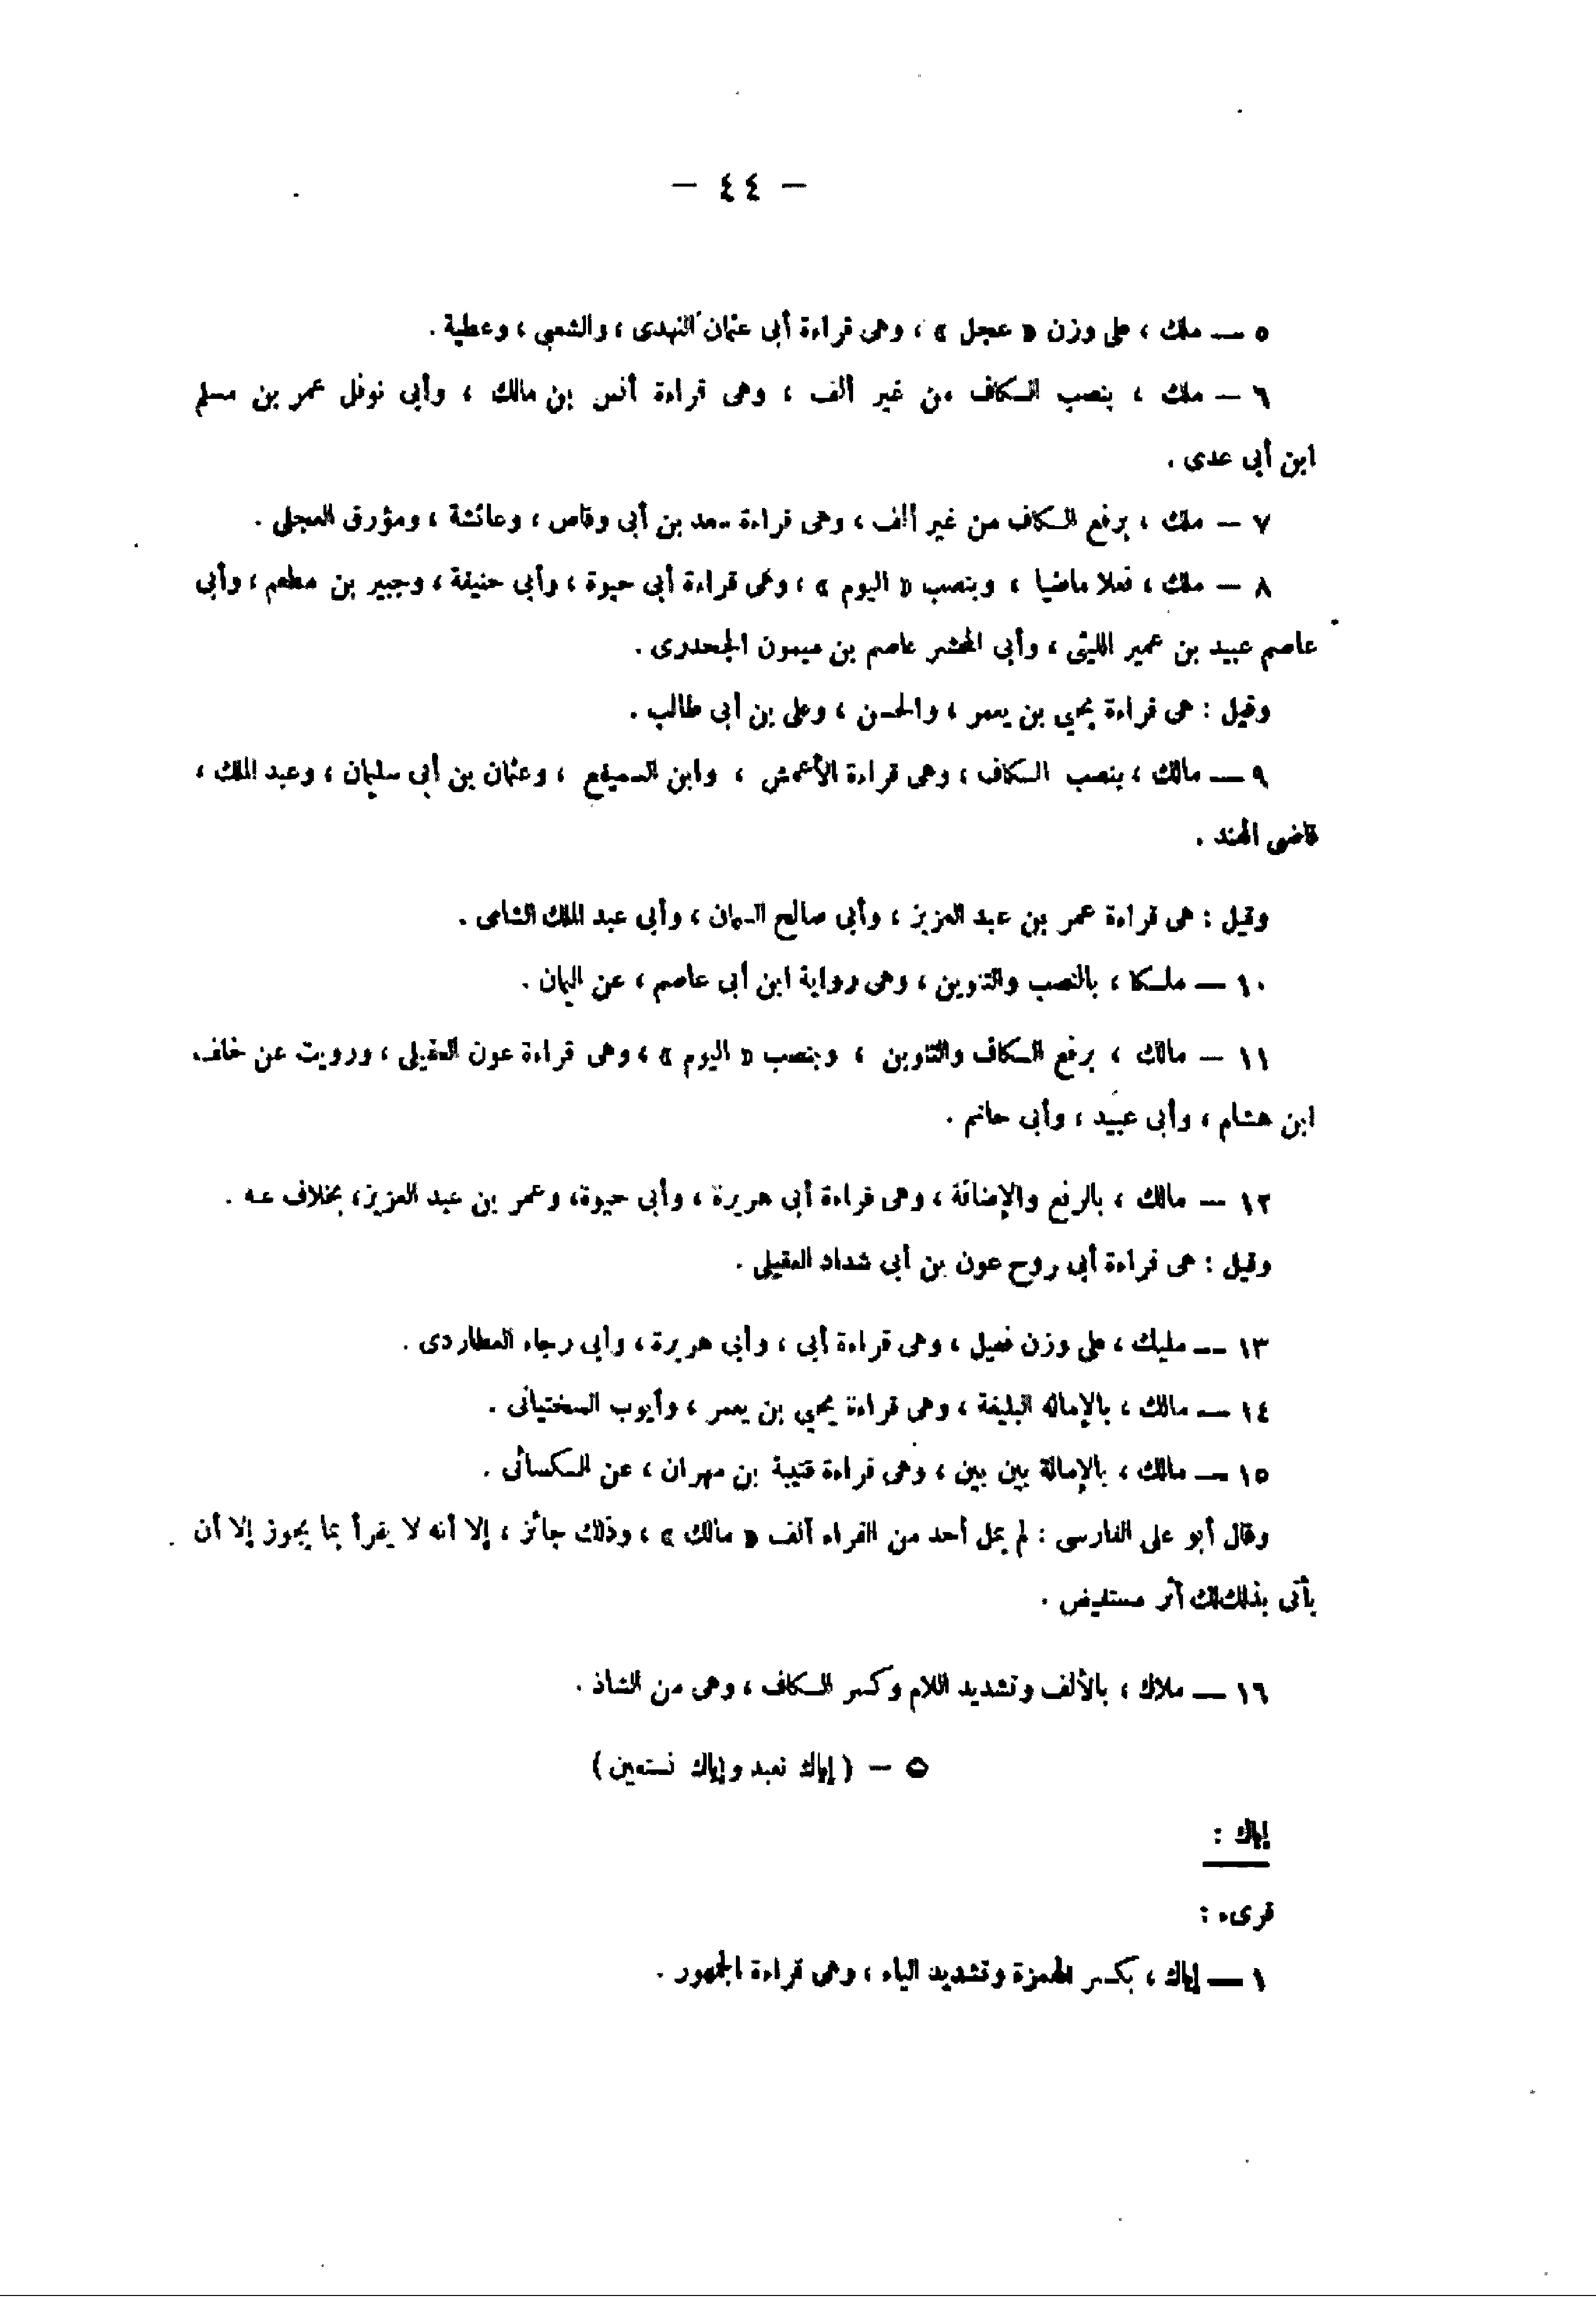 — ٤٤ —
٥ — ملك ، على وزن « عجل » ، وهى قراءة أبى عثمان النهدى ، والشعبي ، وعطية .
٦ — ملك ، بنصب الكاف من غير ألف ، وهى قراءة أنس بن مالك ، وأبى نوفل عمر بن مسلم
ابن أبى عدى .
٧ — ملك ، برفع الكاف من غير ألف ، وهى قراءة سعد بن أبى وقاص ، وعائشة ، ومؤرق العجلى .
٨ — ملك ، فعلا ماضيا ، وبنصب « اليوم » ، وهى قراءة أبى حيوة ، وأبى حنيفة ، وجبير بن مطعم ، وأبى
عاصم عبيد بن عمير الليثى ، وأبى المحشر عاصم بن ميمون الجحدرى .
وقيل : هى قراءة يحيي بن يعمر ، والحسن ، وعلى بن أبى طالب .
٩ — مالك ، بنصب الكاف ، وهى قراءة الأعمش ، وابن السميفع ، وعثمان بن أبى سليمان ، وعبد الملك ،
قاضى الهند .
وقيل : هى قراءة عمر بن عبد العزيز ، وأبى صالح السمان ، وأبى عبد الملك الشامى .
١٠ — ملكا ، بالنصب والتنوين ، وهى رواية ابن أبى عاصم ، عن اليمان .
١١ — مالك ، برفع الكاف والتنوين ، وبنصب « اليوم » ، وهى قراءة عون العقيلى ، ورويت عن خلف
ابن هشام ، وأبى عبيد ، وأبى حاتم .
١٢ — مالك ، بالرفع والإضافة ، وهى قراءة أبى هريرة ، وأبى حيوة، وعمر بن عبد العزيز، بخلاف عنه .
وقيل : هى قراءة أبى روح عون بن أبى شداد العقيلى .
١٣ — مليك ، على وزن فعيل ، وهى قراءة أبى ، وأبى هريرة ، وأبى رجاء العطاردى .
١٤ — مالك ، بالإمالة البليغة ، وهى قراءة يحيي بن يعمر ، وأيوب السختيانى .
١٥ — مالك ، بالإمالة بين بين ، وهى قراءة قتيبة بن مهران ، عن الكسائى .
وقال أبو على الفارسى : لم يمل أحد من القراء ألف « مالك » ، وذلك جائز ، إلا أنه لا يقرأ بما يجوز إلا أن
يأتى بذلك أثر مستفيض .
١٦ — ملاك ، بالألف وتشديد اللام وكسر الكاف ، وهى من الشاذ .
٥ — ( إياك نعبد وإياك نستعين )
إياك :
قرىء :
١ — إياك ، بكسر الهمزة وتشديد الياء ، وهى قراءة الجمهور .